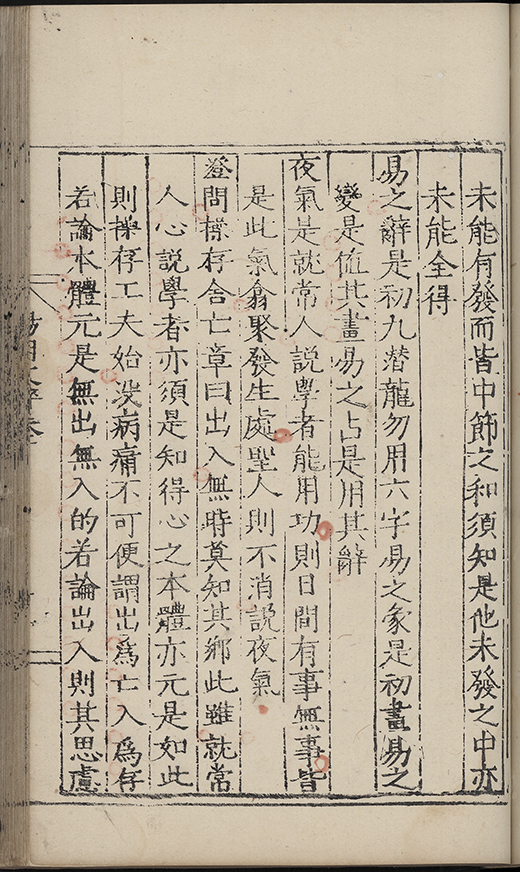 未能有發而皆中節之和須知是他未發之中亦
未能全得
易之辭是初九潛龍勿用六字易之象是初畫易之
變是值其畫易之占是用其辭
夜氣是就常人說學者能用功則日間有事無事皆
是此氣翕聚發生處聖人則不消說夜氣
澄問操存舍亡章曰出入無時莫知其鄉此雖就常
人心說學者亦須是知得心之本體亦元是如此
則操存工夫始没病痛不可便謂出爲亡入爲存
若論本體元是無出無入的若論出入則其思慮